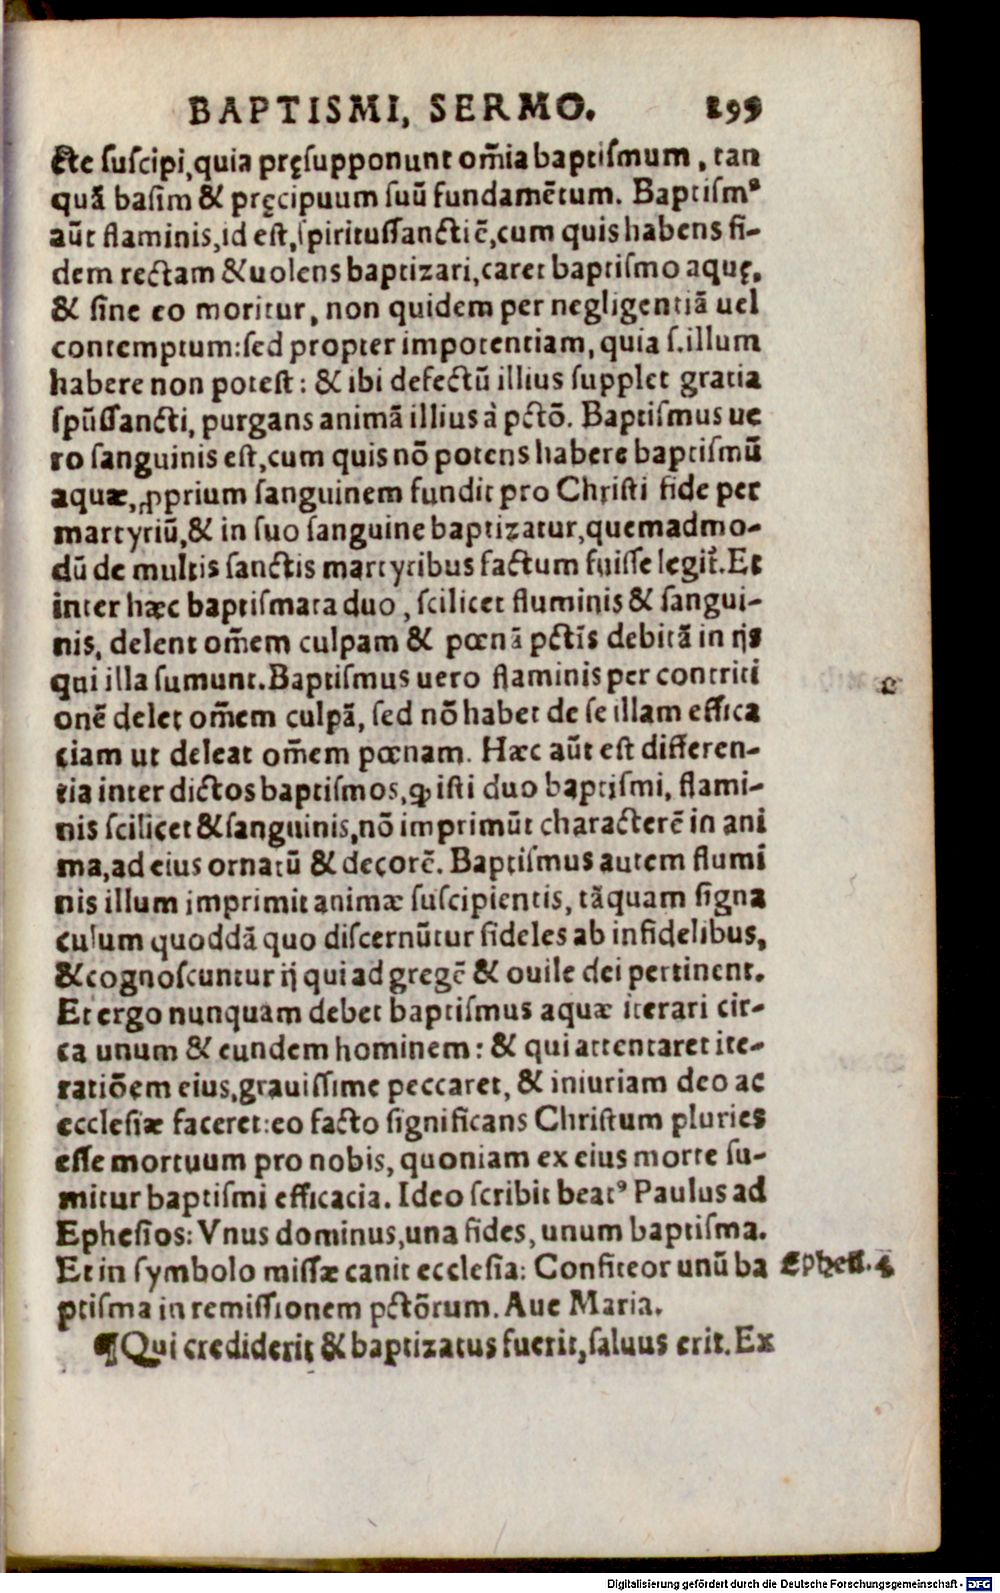 BAPTISMI, SERMO. 295
cte suscipi, quia pręsupponunt om̃ia baptismum, tan
quã basim & pręcipuum suũ fundamẽtum. Baptismꝰ
aũt flaminis, id est, spiritussancti ẽ, cum quis habens fi-
dem rectam & uolens baptizari, caret baptismo aquę,
& sine eo moritur, non quidem per negligentiã uel
contemptum: sed propter impotentiam, quia s. illum
habere non potest: & ibi defectũ illius supplet gratia
spũssancti, purgans animã illius à pctõ. Baptismus ue
ro sanguinis est, cum quis nõ potens habere baptismũ
aquæ, ꝓprium sanguinem fundit pro Christi fide per
martyriũ, & in suo sanguine baptizatur, quemadmo-
dũ de multis sanctis martyribus factum fuisse legit̃. Et
inter hæc baptismata duo, scilicet fluminis & sangui-
nis, delent om̃em culpam & pœnã pctĩs debitã in ijs
qui illa sumunt. Baptismus uero flaminis per contriti
onẽ delet om̃em culpã, sed nõ habet de se illam effica
ciam ut deleat om̃em pœnam. Hæc aũt est differen-
tia inter dictos baptismos, ꝙ isti duo baptismi, flami-
nis scilicet & sanguinis, nõ imprimũt characterẽ in ani
ma, ad eius ornatũ & decorẽ. Baptismus autem flumi
nis illum imprimit animæ suscipientis, tãquam signa
culum quoddã quo discernũtur fideles ab infidelibus,
& cognoscuntur ij qui ad gregẽ & ouile dei pertinent.
Et ergo nunquam debet baptismus aquæ iterari cir-
ca unum & eundem hominem: & qui attentaret ite-
ratiõem eius, grauissime peccaret, & iniuriam deo ac
ecclesiæ faceret: eo facto significans Christum pluries
esse mortuum pro nobis, quoniam ex eius morte su-
mitur baptismi efficacia. Ideo scribit beatꝰ Paulus ad
Ephesios: Vnus dominus, una fides, unum baptisma.
Et in symbolo missæ canit ecclesia: Confiteor unũ ba
Ephes. 4
ptisma in remissionem pctõrum. Aue Maria.
¶ Qui crediderit & baptizatus fuerit, saluus erit. Ex
Digitalisierung gefördert durch die Deutsche Forschungsgemeinschaft - DFG